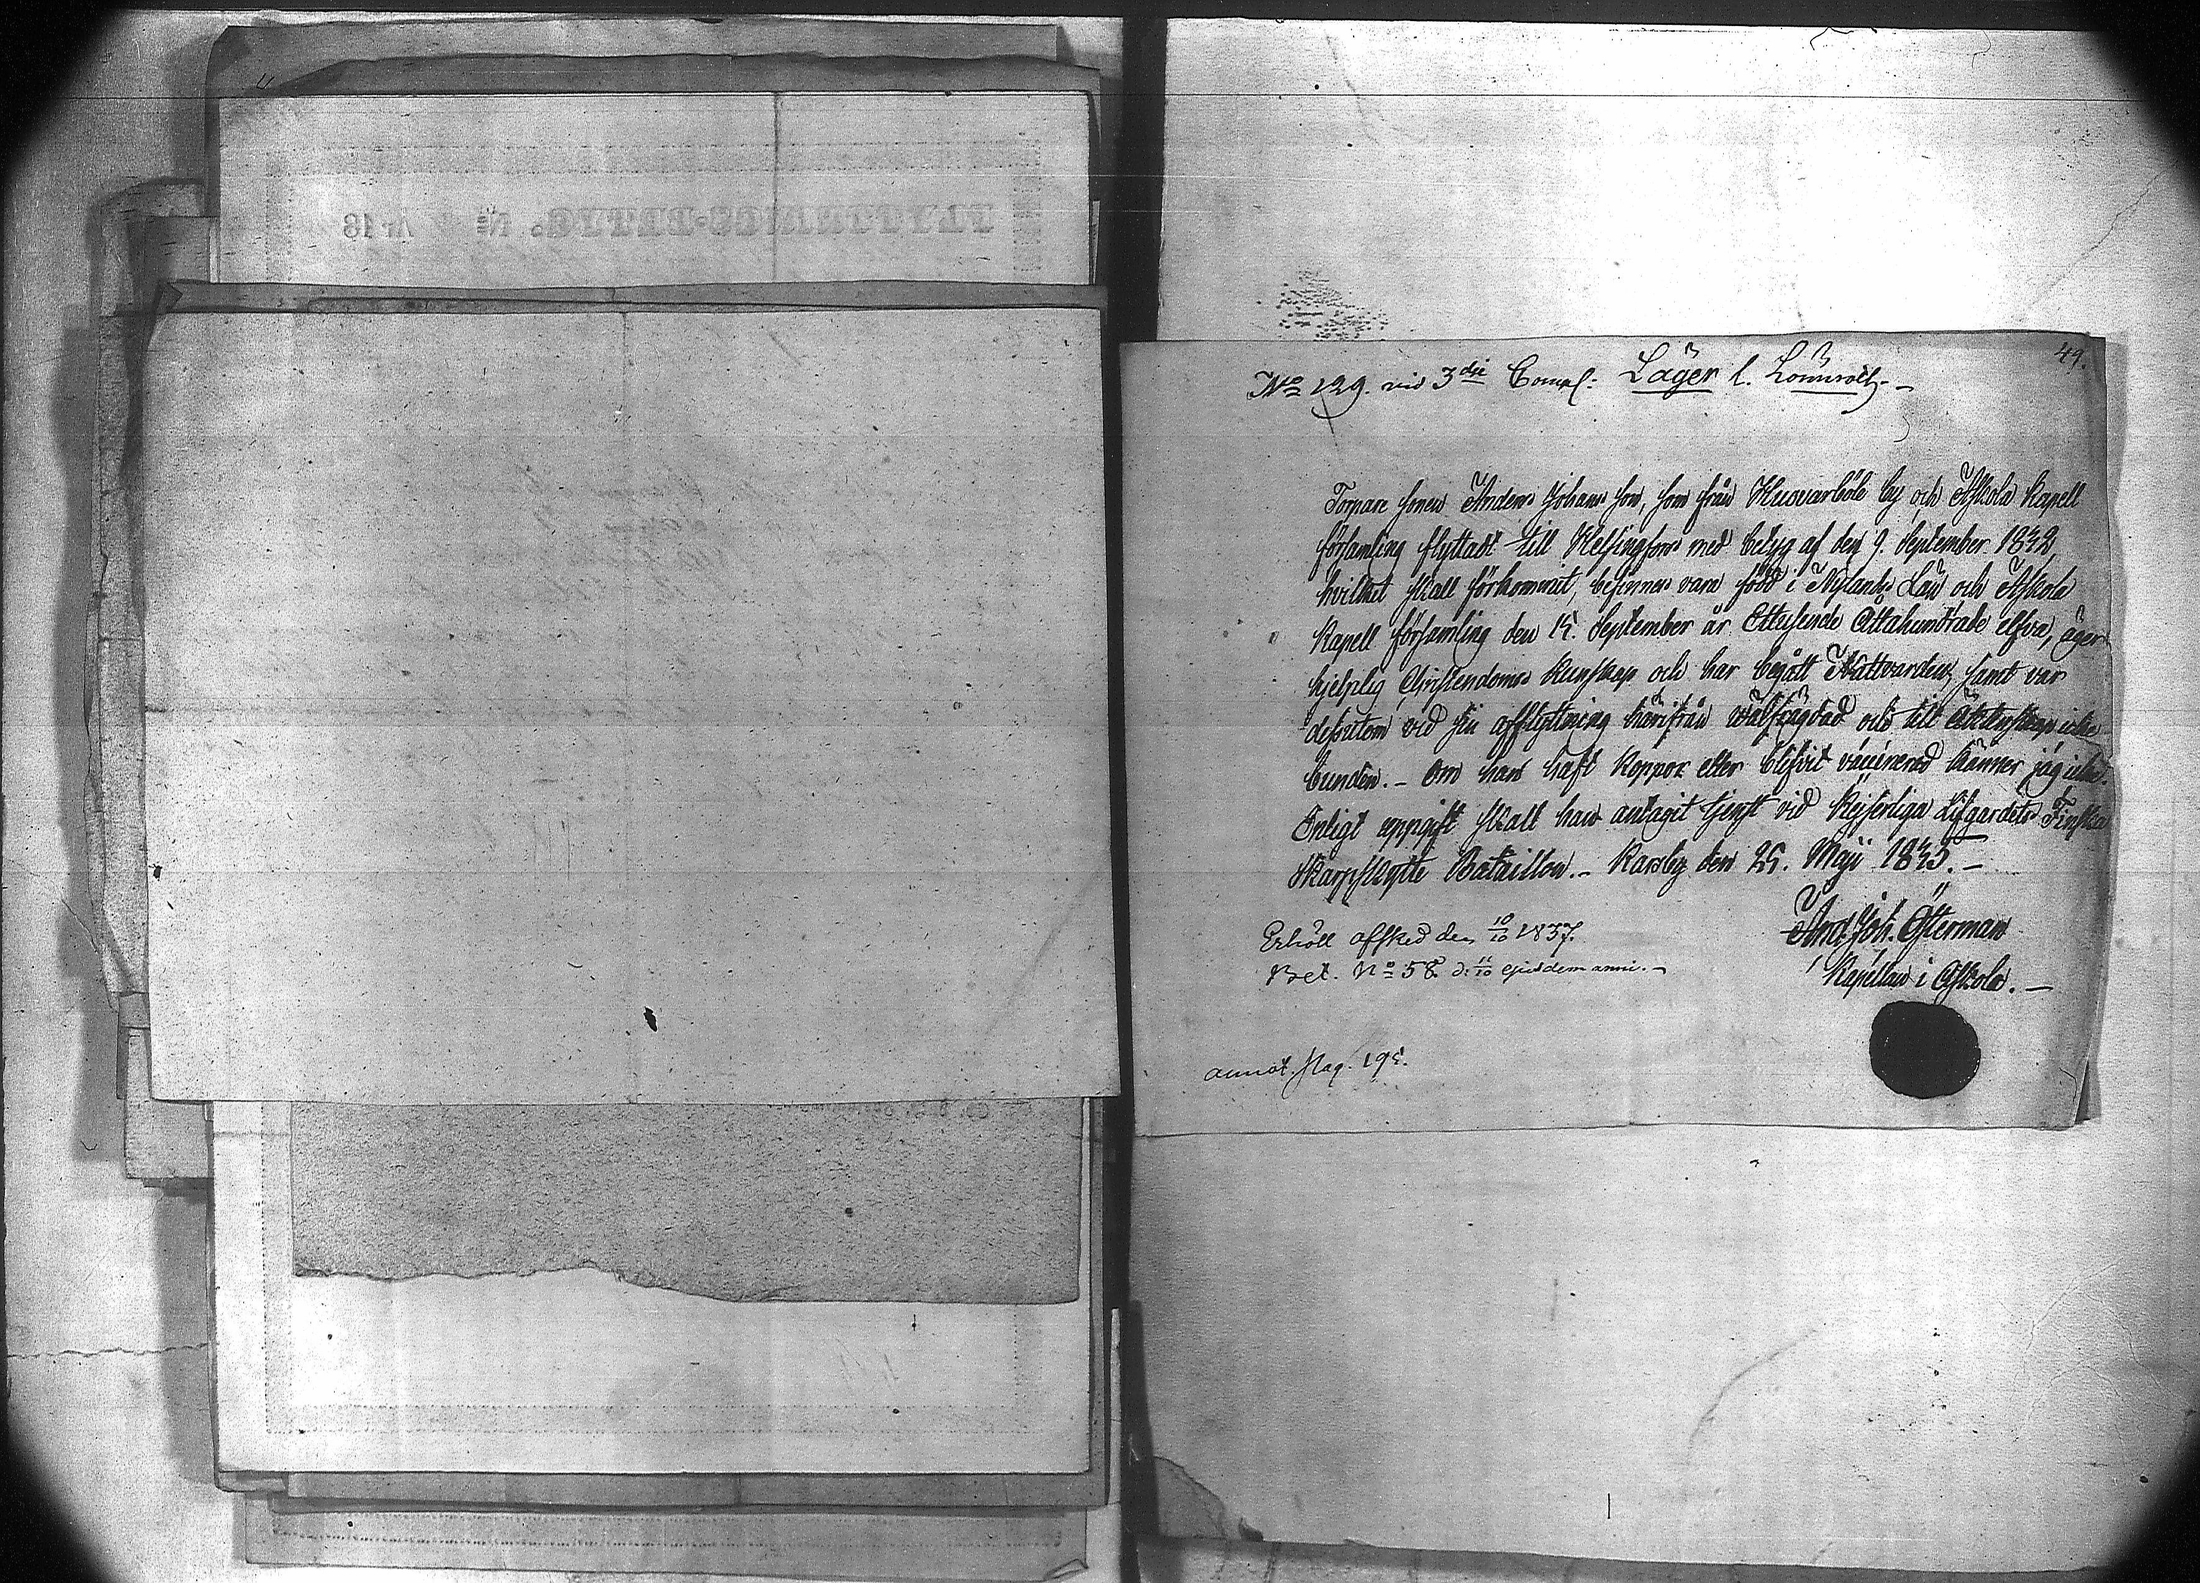 49.
No 129. vid 3dje Comp: Läger l. Lönnroth.
Torpare sonen Anders Johans son, som från Huuvarböle by och Askola Kapell
församling flyttat till Helsingfors med betyg af den 9. September 1832,
hvilket skall förkommit, befinnes vara född i Nylands Län och Askola
Kapell församling den 15. September år Ettusende Åttahundrade elfva, äger
hjelplig Christendoms kunskap och har begått Nattvarden, samt var
dessutom vid sin afflyttning härifrån wälfrägdad och till Äktenskap icke
bunden. - Om han haft koppor eller blifvit vaccinerad känner jag icke.
Enligt uppgift skall han antagit tjenst vid Kejserliga Lifgardets Finska
Skarpskytte Bataillon. - Karsby den 25. Maji 1835. -
And. Joh. Österman
Kapellan i Askola. -
Erhöll afsked den 10/10 1837.
Bet. No 58 d: 11/10 ejusdem anni. -
annot. pag. 195.
FLYTTNINGS-BETYG. No Ar 18